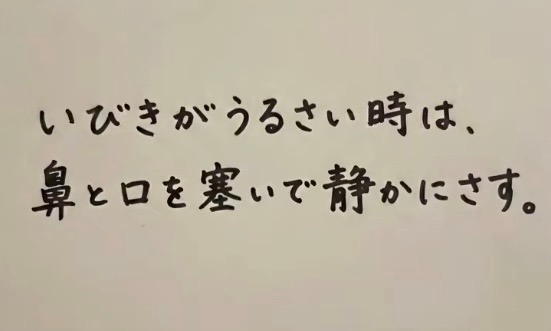 いびきがうるさい時は、
鼻と口を塞いで静かにさす。